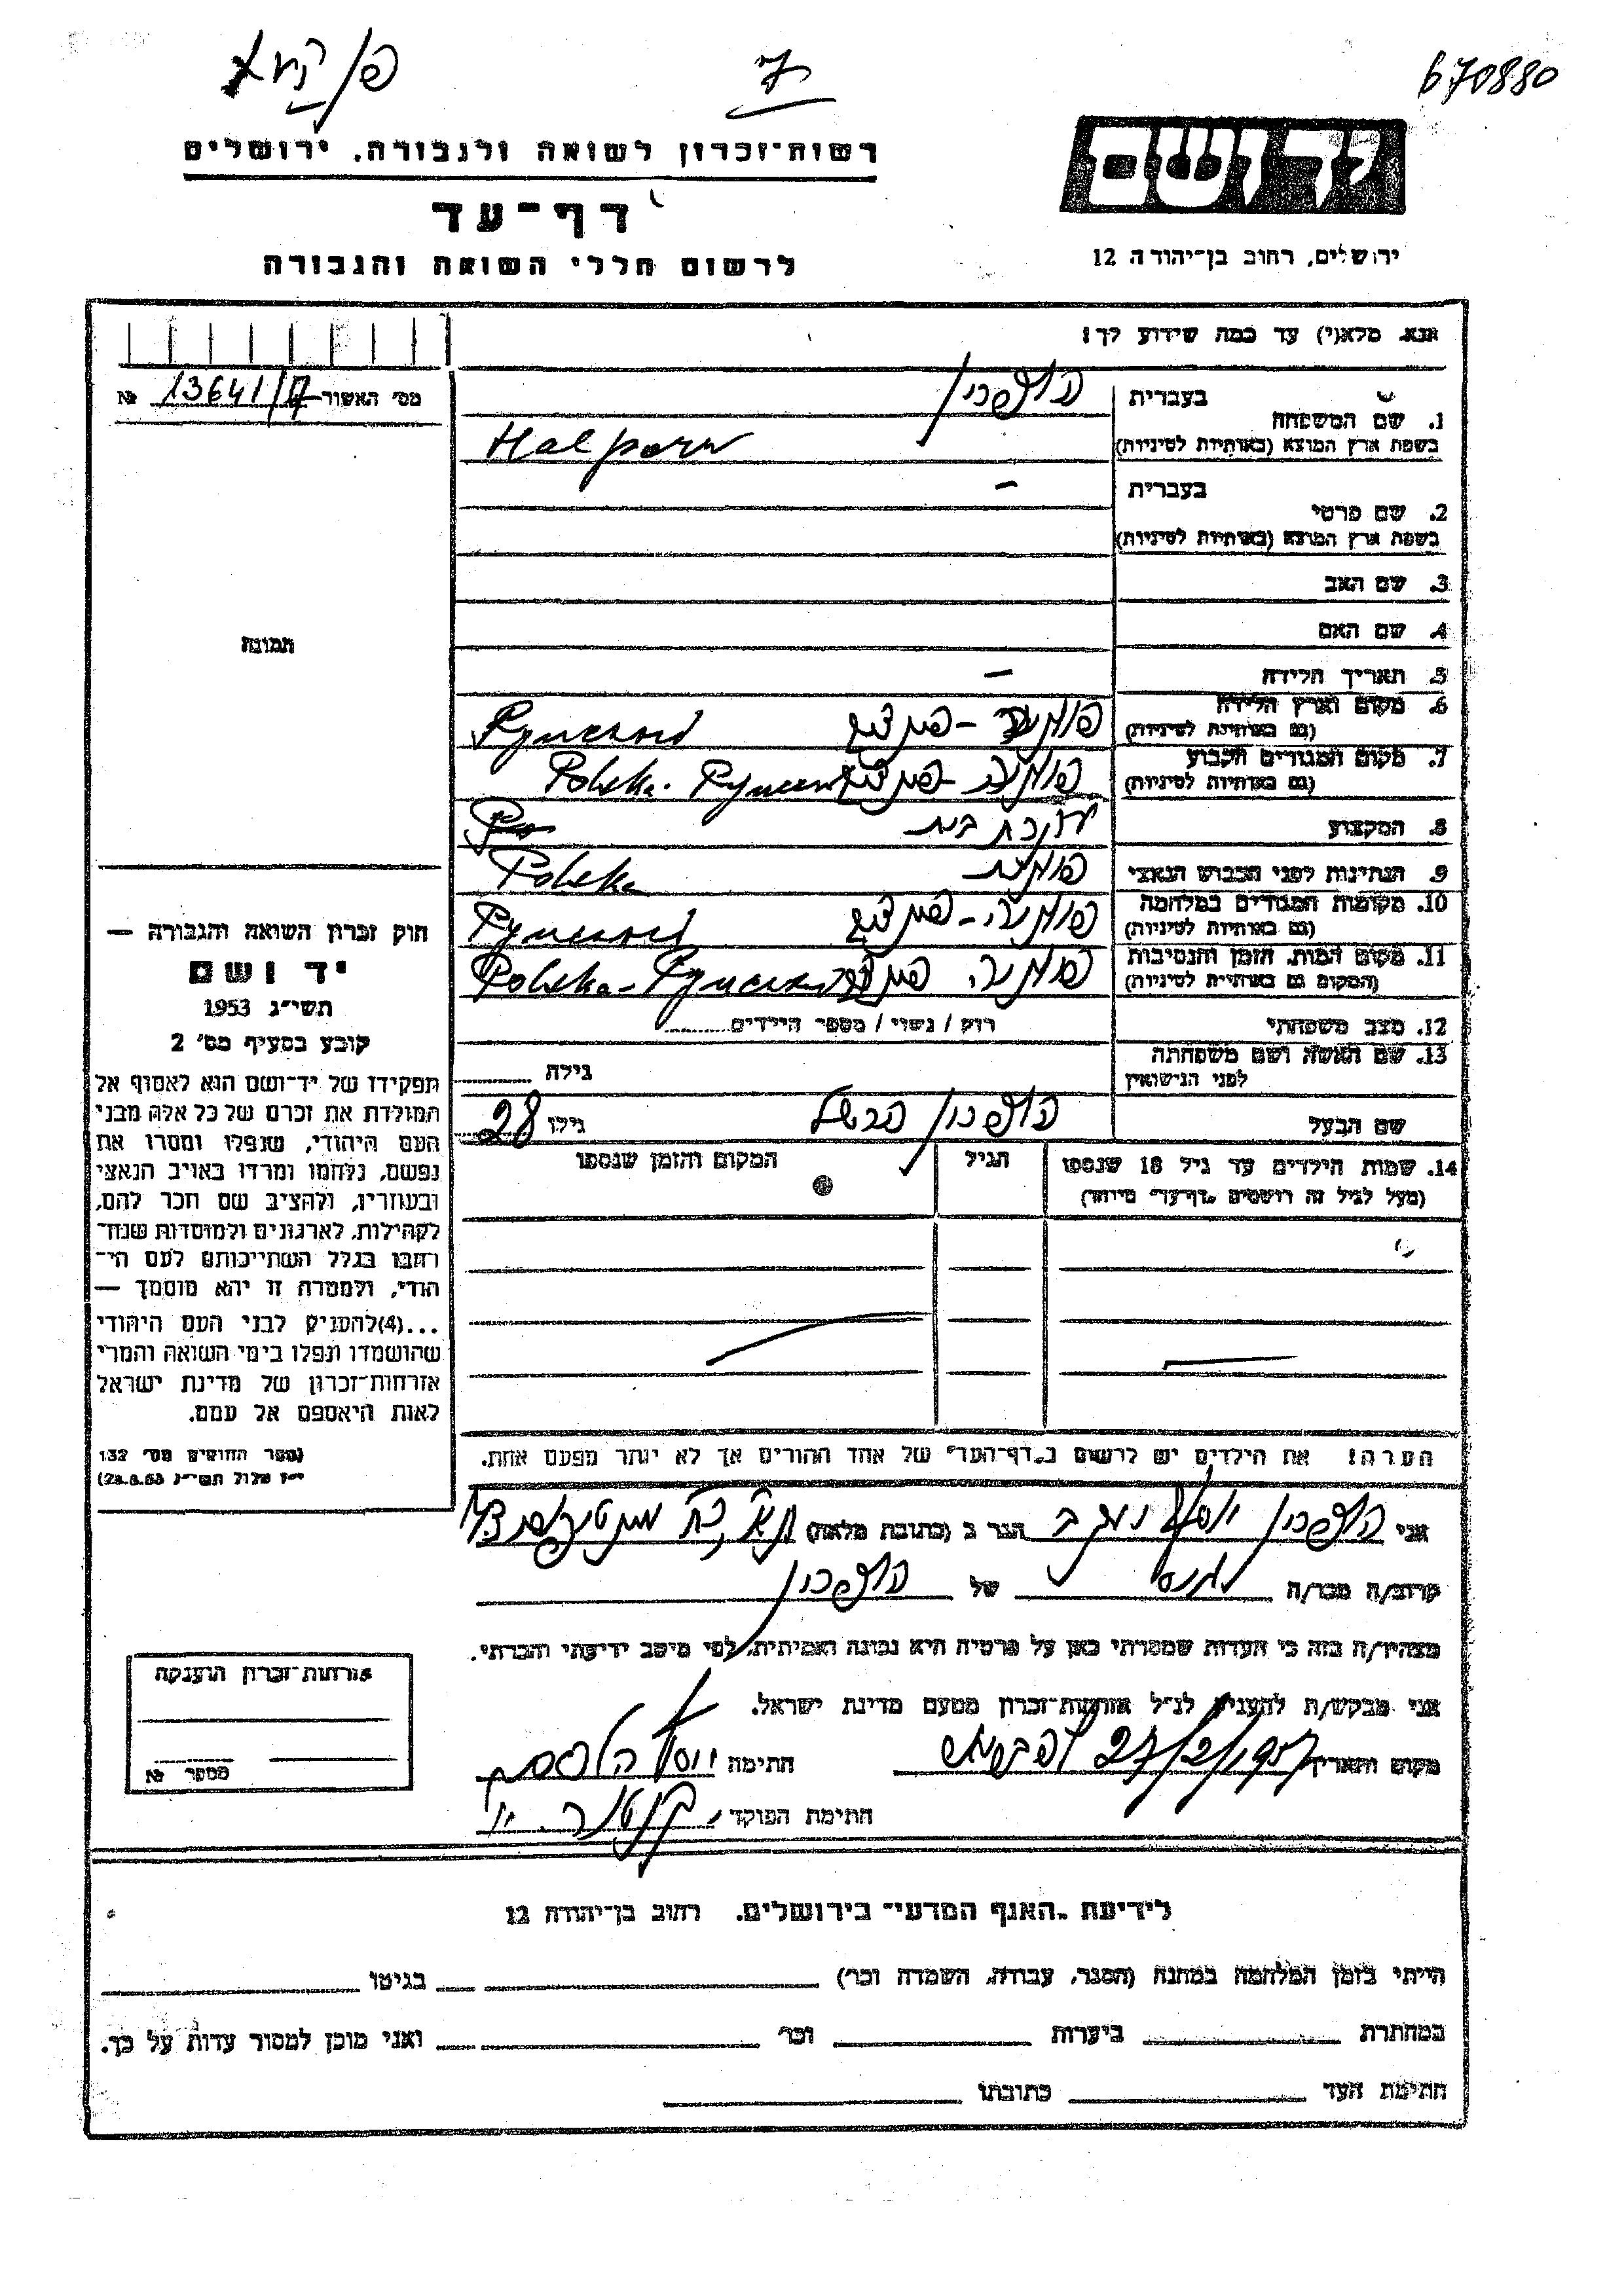 670880
רשות־זכרון לשואה ולגבורה, ירושלים
דף־עד
לרשום חללי השואה והגבורה
יד ושם
ירושלים, רחוב בן־יהודה 12
אנא, מלא(י) עד כמה שידוע לך!
מס' האשור 13641/ № 
1. שם המשפחה
בעברית הלפרין
בשפת ארץ המוצא (באותיות לטיניות) Halpern
2. שם פרטי
בעברית –
בשפת ארץ המוצא (באותיות לטיניות)
3. שם האב
4. שם האם
5. תאריך הלידה –
6. מקום וארץ הלידה
(גם באותיות לטיניות)
7. מקום המגורים הקבוע
(גם באותיות לטיניות) Polska.
8. המקצוע עקרת בית
9. הנתינות לפני הכבוש הנאצי פולנית Polska
10. מקומות המגורים במלחמה
(גם באותיות לטיניות)
11. מקום המות, הזמן והנסיבות
(המקום גם באותיות לטיניות) Polska
12. מצב משפחתי רווק / נשוי / מספר הילדים
13. שם האשה ושם משפחתה
לפני הנישואין גילה
שם הבעל הלפרין הרשל גילו 28
14. שמות הילדים עד גיל 18 שנספו
(מעל לגיל זה רושמים „דף־עד" מיוחד)
הגיל
המקום והזמן שנספו
תמונה
חוק זכרון השואה והגבורה —
יד ושם
תשי"ג 1953
קובע בסעיף מס' 2
תפקידו של יד־ושם הוא לאסוף אל
המולדת את זכרם של כל אלה מבני
העם היהודי, שנפלו ומסרו את
נפשם, נלחמו ומרדו באויב הנאצי
ובעוזריו, ולהציב שם וזכר להם,
לקהילות, לארגונים ולמוסדות שנח־
רבו בגלל השתייכותם לעם הי־
הודי, ולמטרה זו יהא מוסמך —
...(4) להעניק לבני העם היהודי
שהושמדו ונפלו בימי השואה והמרי
אזרחות־זכרון של מדינת ישראל
לאות היאספם אל עמם.
(ספר החוקים מס' 132
י"ז אלול תשי"ג 28.8.53)
הערה! את הילדים יש לרשום ב„דף־העד" של אחד ההורים אך לא יותר מפעם אחת.
אני הלפרין יוסף הגר ב (כתובת מלאה)
קרוב/ה מכר/ה של הלפרין
מצהיר/ה בזה כי העדות שמסרתי כאן על פרטיה היא נכונה ואמיתית, לפי מיטב ידיעתי והכרתי.
אני מבקש/ת להעניק לנ"ל אזרחות־זכרון מטעם מדינת ישראל.
מקום ותאריך 27/2/1957 חתימה
חתימת הפוקד
אזרחות־זכרון הוענקה
מספר №
לידיעת „האגף המדעי" בירושלים. רחוב בן־יהודה 12
הייתי בזמן המלחמה במחנה (הסגר, עבודה, השמדה וכו') בגיטו
במחתרת ביערות וכו' ואני מוכן למסור עדות על כך.
חתימת העד כתובתו